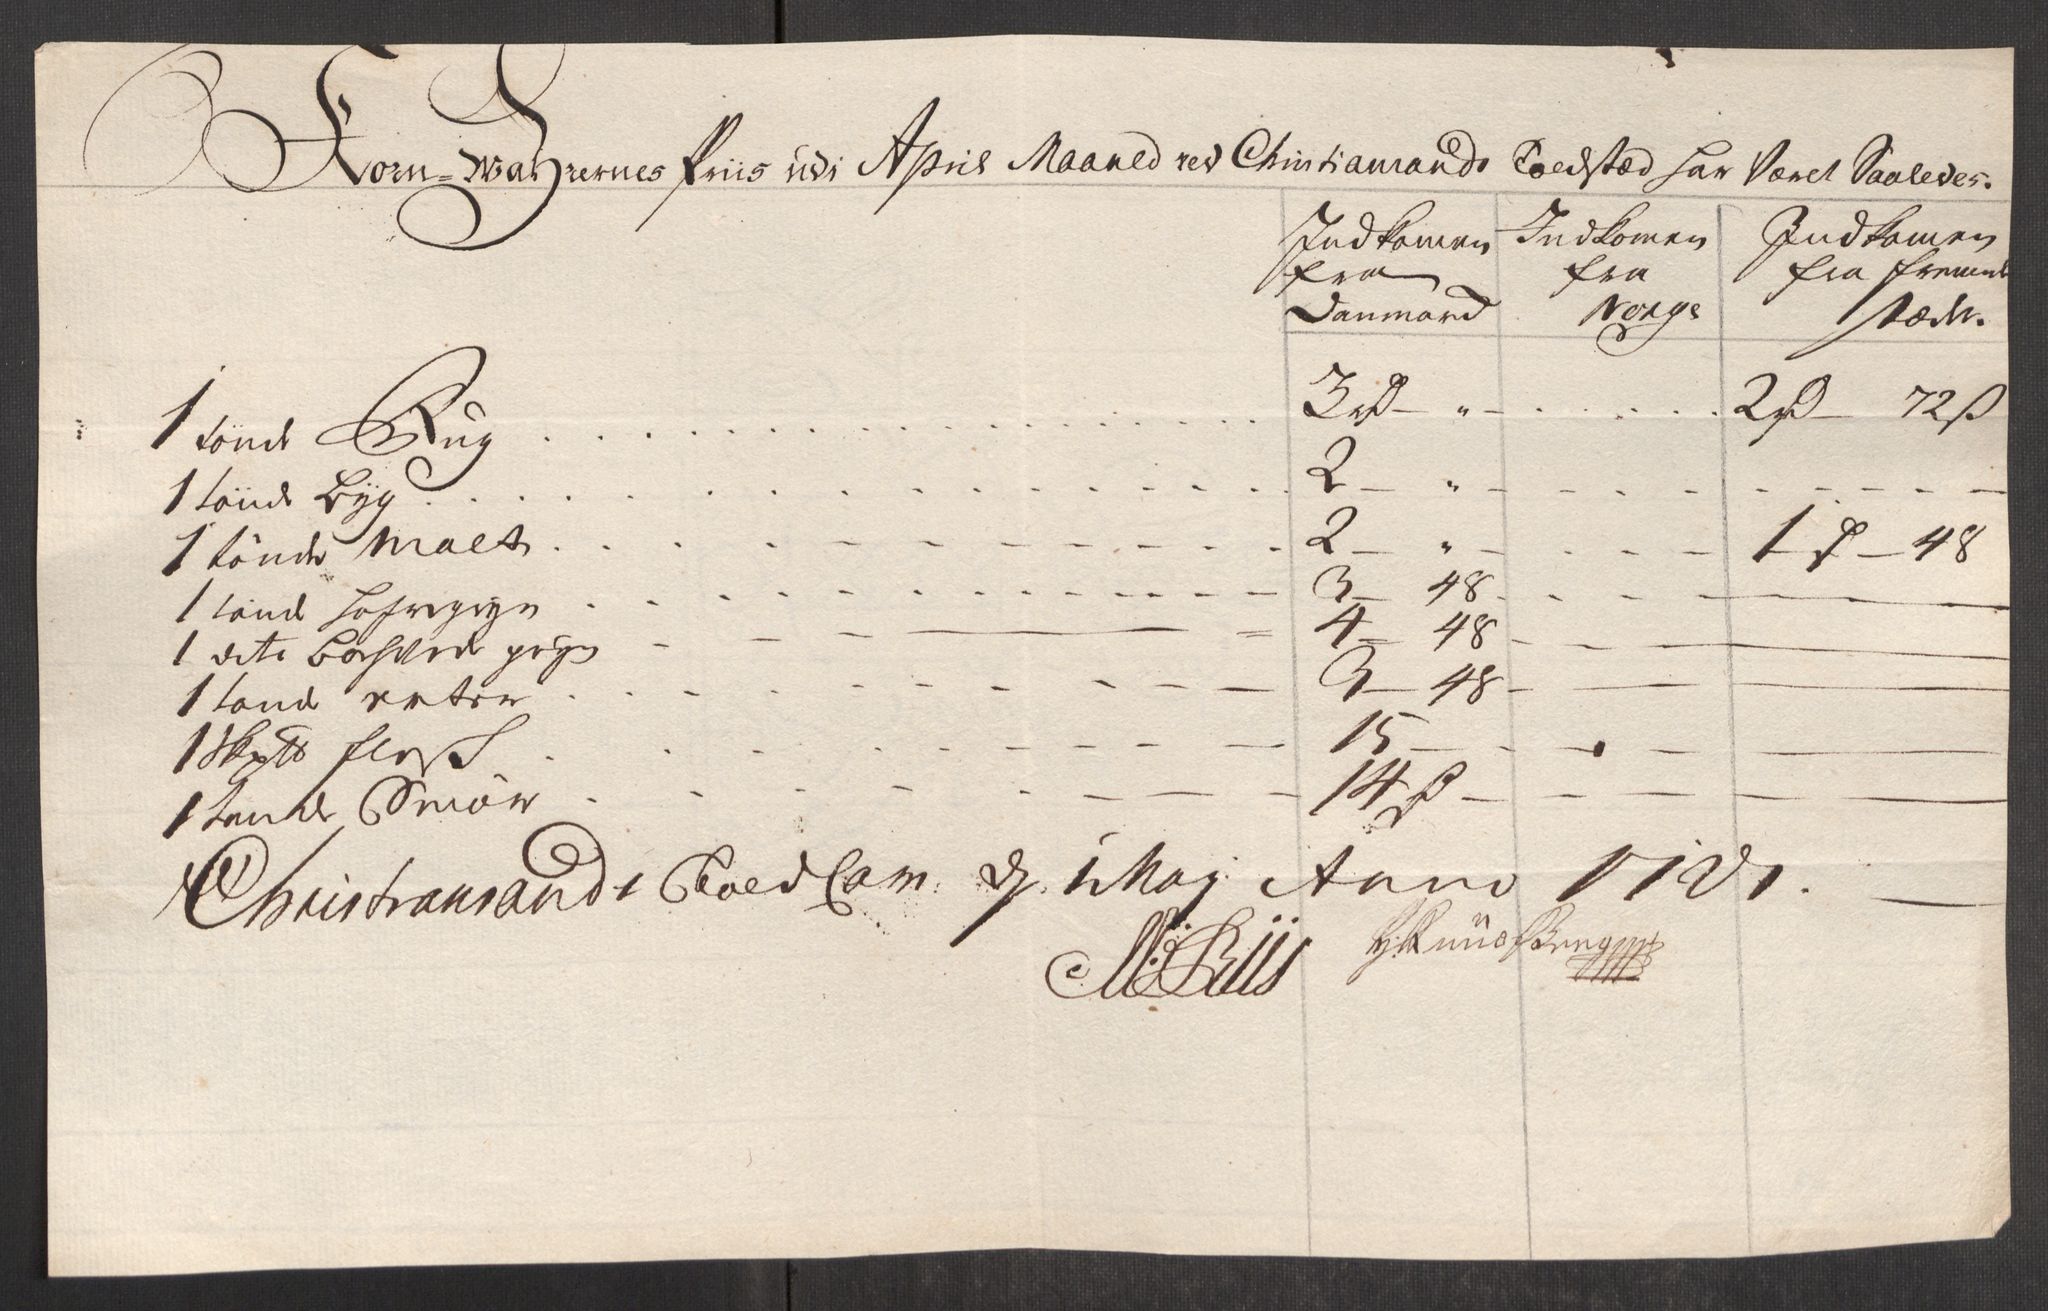 Korn-Wahrernes Priis udi April Maaned ved Christiansands Toldstæd har Været Saaledes.
Indkomen fra Danmarck
Indkomen fra Norge
Indkomen fra fremmde stæder.
1 tønde Rug 3 rd - " - 2 rd - 72 ß
1 tønde Byg 2 - "
1 tønde Malt 2 - " - 1 rd - 48
1 tønde hafregryn 3 - 48
1 dito Boghvede gryn 4 - 48
1 tønde erter 3 - 48
1 flesk 15
1 tønde Smør 14 ß
Christiansands Told Cam. d. 1 Maj Anno 1721.
Riis